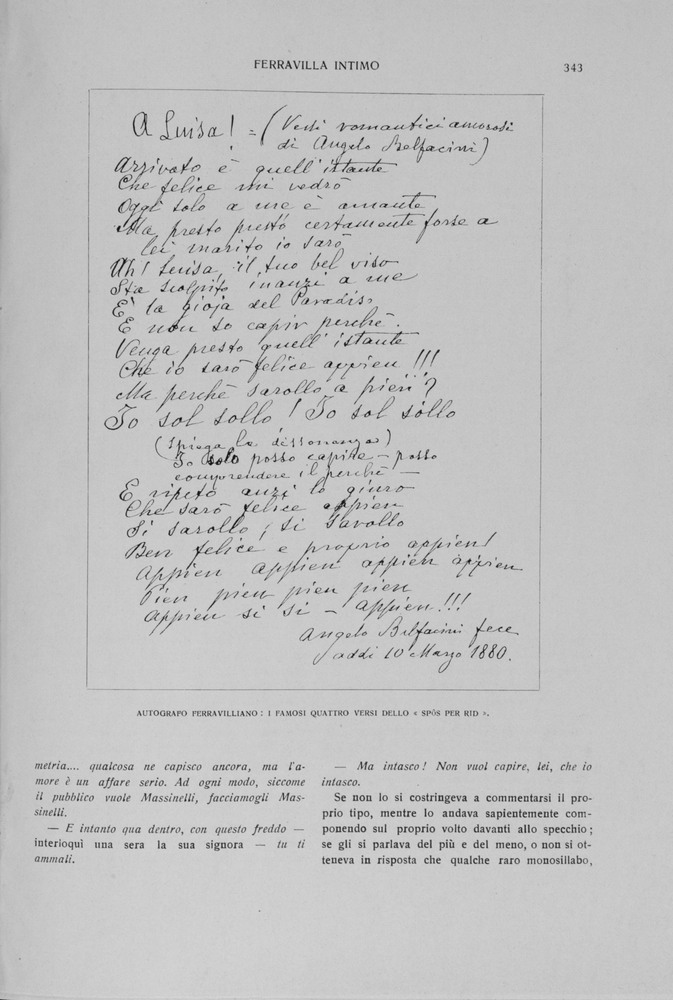 FERRAVILLA INTIMO
343
A Luisa! = (Versi romantici amorosi
di Angelo Belfacini)
Arrivato è quell'istante
Che felice mi vedrò
Oggi solo a me è amante
Ma presto presto certamente forse a
lei marito io sarò
Ah! Luisa, il tuo bel viso
Sta scolpito inanzi a me
E' la gioja del Paradiso
E non so capir perchè.
Venga presto quell'istante
Che io sarò felice appien!!!
Ma perchè sarollo a pien?
Io sol sollo! Io sol sollo
(Spiega la dissonanza)
Io solo posso capire — posso
comprendere il perchè —
E ripeto anzi lo giuro
Che sarò felice appien
Si sarollo, si sarollo
Ben felice e proprio appien!
Appien appien appien appien
Pien pien pien pien
Appien si si – appien!!!
Angelo Belfacini fece
addi 10 Marzo 1880.
AUTOGRAFO FERRAVILLIANO: I FAMOSI QUATTRO VERSI DELLO « SPÔS PER RID ».
metria.... qualcosa ne capisco ancora, ma l'a-
more è un affare serio. Ad ogni modo, siccome
il pubblico vuole Massinelli, facciamogli Mas-
sinelli.
— E intanto qua dentro, con questo freddo —
interloquì una sera la sua signora — tu ti
ammali.
— Ma intasco! Non vuol capire, lei, che io
intasco.
Se non lo si costringeva a commentarsi il pro-
prio tipo, mentre lo andava sapientemente com-
ponendo sul proprio volto davanti allo specchio;
se gli si parlava del più e del meno, o non si ot-
teneva in risposta che qualche raro monosillabo,